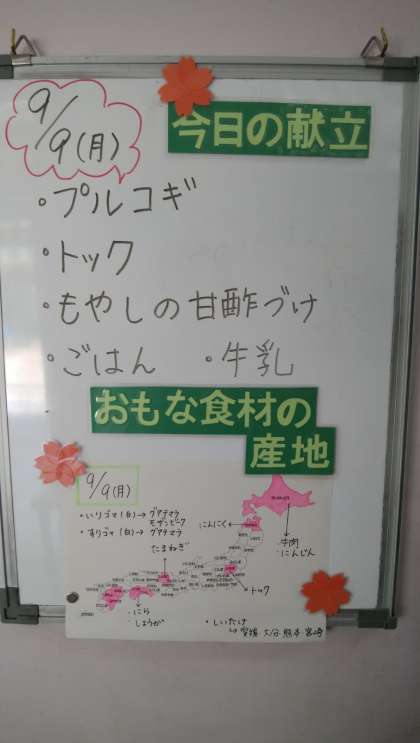 9/9(月)
今日の献立
・プルコギ
・トック
・もやしの甘酢づけ
・ごはん ・牛乳
おもな食材の
産地
9/9(月)
・いりゴマ(白)→グアテマラ
モザンビーク
・すりゴマ(白)→グアテマラ
にんにく
・牛肉
・にんじん
たまねぎ
トック
・にら
・しょうが
・しいたけ
↳愛媛 大分 熊本 宮崎